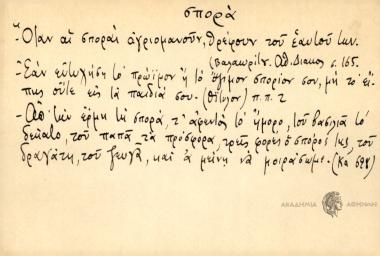 σπορὰ
- Ὅταν αἱ σποραὶ ἀγριομανοῦν, θρέφουν τοῦ ἑαυτοῦ των.
(Βαλαωρίτ. Ἀθ. Διάκος σ. 165.
- Ἐὰν εὐτυχήσῃ τὸ πρώϊμον ἢ τὸ ὄψιμον σπορίον σου, μὴ τὸ εἴ-
πῃς οὔτε εἰς τὰ παιδιά σου. π. π. 2
- Ἀπ' τὴν ἔρμη τὴ σπορά, τ' ἀφεντὸς τὸ ἤμορο, τοῦ βασιλιᾶ τὸ
δέκατο, τοῦ παπᾶ τὰ πρόσφορα, τρεῖς φορὲς ὁ σπόρος της, τοῦ
δραγάτη, τοῦ ζευγᾶ, καὶ ἃ μείνῃ νὰ μοιράσωμε.
ΑΚΑΔΗΜΙΑ ΑΘΗΝΩΝ